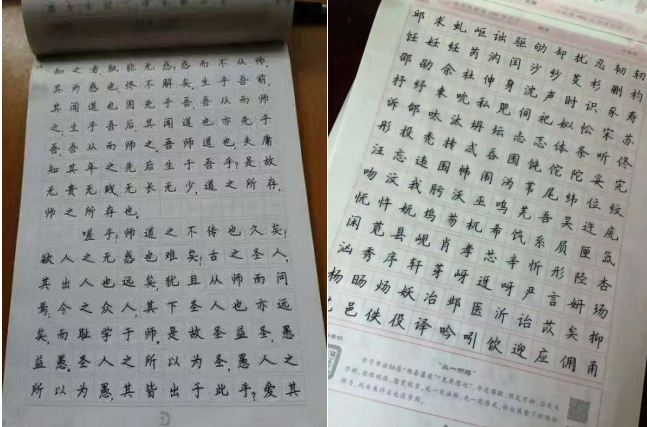 知之者孰能无惑？惑而不从师，
其为惑也，终不解矣。生乎吾前，
其闻道也固先乎吾，吾从而师
之；生乎吾后，其闻道也亦先乎
吾，吾从而师之。吾师道也，夫庸
知其年之先后生于吾乎？是故
无贵无贱，无长无少，道之所存，
师之所存也。
嗟乎！师道之不传也久矣！
欲人之无惑也难矣！古之圣人，
其出人也远矣，犹且从师而问
焉；今之众人，其下圣人也亦远
矣，而耻学于师。是故圣益圣，愚
益愚。圣人之所以为圣，愚人之
所以为愚，其皆出于此乎？爱其
邱求虬岖诎驱劬却扰忍韧轫
饪妊纴芮汭闰沙纱芟杉删杓
邵劭余社伸身沈声时识豕寿
抒纾束吮私兕伺祀姒忪宋苏
诉邰呔汰坍坛忐忑体条听佟
彤投秃抟武吞囤饨佗陀妥完
汪忘违围帏闱沩苇尾纬位纹
吻汶我肟沃巫呜芜吾吴连庑
怃忤妩坞芴杌希饩系屃匣氙
闲苋县岘肖孝忐辛忻形陉杏
汹秀序轩芽岈迓呀严言妍玚
杨旸炀妖冶邺医沂诒苡矣抑
邑佚役译吟吲饮迎应佣甬
"从一而终"